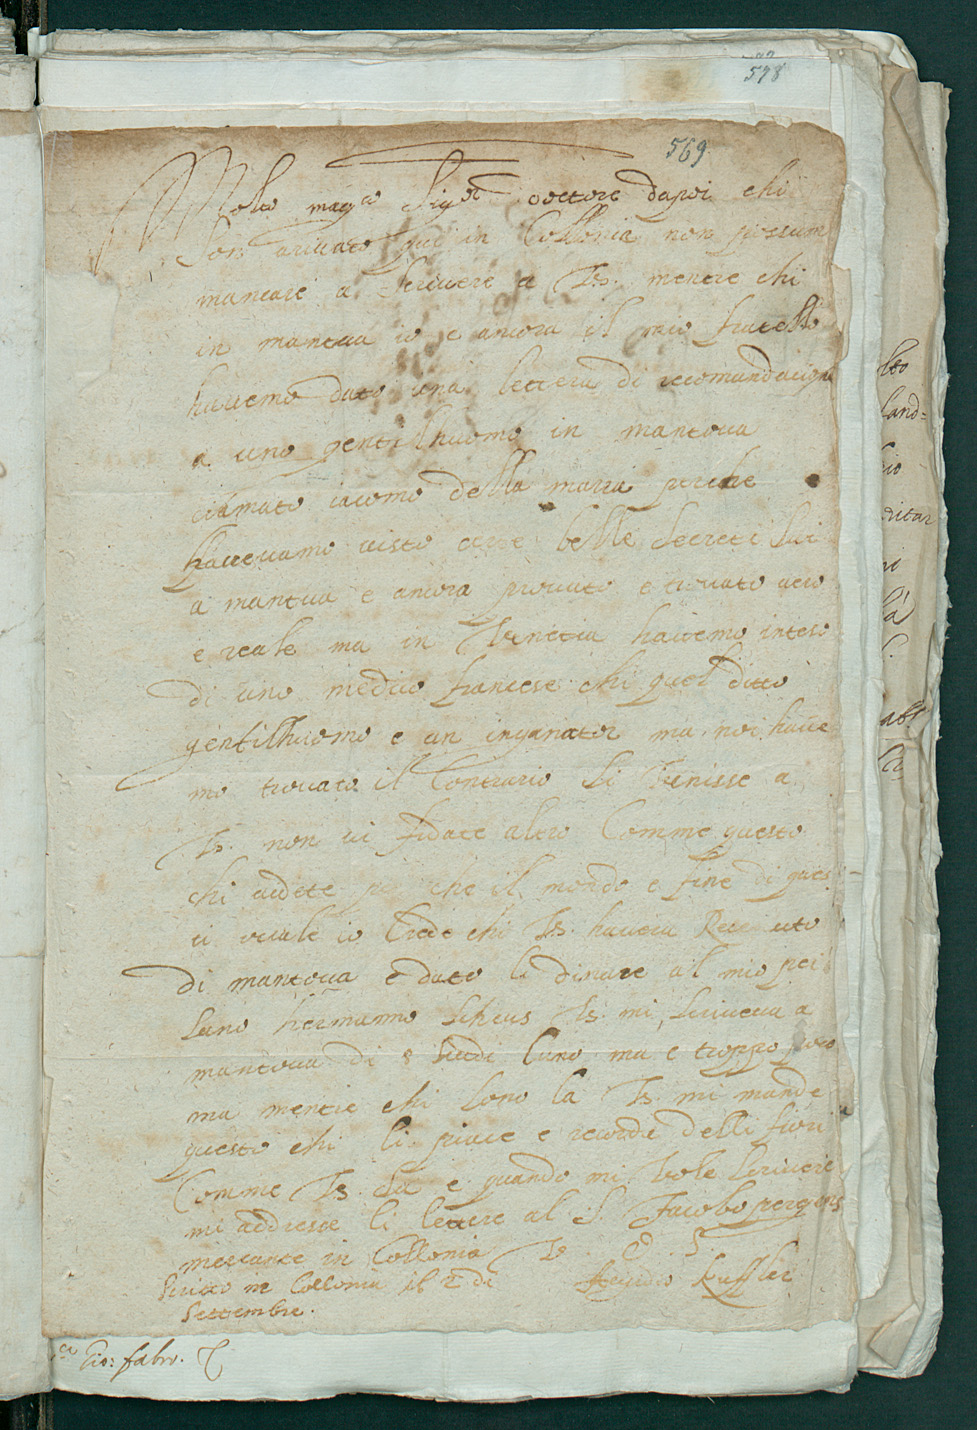 578
569
Molto mag.co Sig.or dottore dapoi chi
son arivato qui in Collonia non possum
mancare a scrivere a Vs. mentre chi
in mantua io e ancora il mio fratello
havemo dato una lettera di recomandacion
a uno gentilhuomo in mantova
ciamato iacomo della marra perche
havevamo visto certe belle secreti lui
a mantua e ancora provato e trovato vero
e reale ma in Venetia havemo inteso
di uno medico francese chi quel ditto
gentilhuomo e un inganator ma noi have
mo trovato il Contrario si Venisse a
Vs. non vi fidate altro Comme questo
chi vedete per che il mondo e fine di ques
ti io Crede chi Vs. havera Recevuto
di mantova e dato li dinare al mio per
sono hermanno Vs. mi scriveva a
mantova di 8 scudi l'uno ma e troppo poco
ma mentre chi sono la Vs. mi mande
questo chi li piace e recorde delli fiori
Comme Vs. sa e quando mi Vole scrivere
mi addresse li lettere al S. Jacobo pergens
mercante in Collonia Vs. S.
Scritto in Collonia il 2 di Kuffler
Settembre.
Gio: fabro.